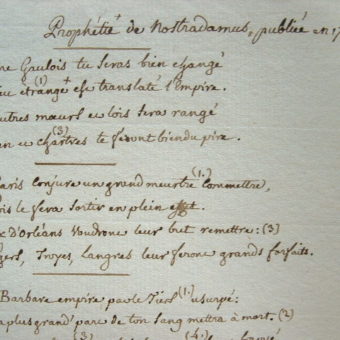 Prophétie de Nostradamus, publiée en 17
ne Gaulois tu seras bien changé
étrange est translaté l'Empire.
utres mœurs et lois sera rangé
en et (3) chartres te feront bien du pire.
aris conjure un grand meurtre (1.) commettre,
ois le fera sortir en plein effet.
x d'Orléans voudront leur but remettre: (3)
gers, Troyes, Langres leur feront grands forfaits.
Barbare empire par le Tiers (1.) usurpé:
a plus grand' part de ton sang mettra à mort. (2)
(3) (4.)